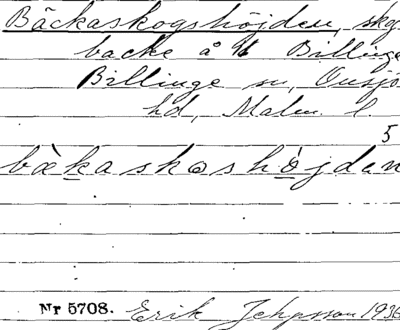 Bäckaskogshöjden, skg.
backe å 1/6 Billinge
Billinge sn, Onsjö
hd, Malm. l.
5
bàkaskoshöjdan
Nr 5708. Erik Jeppsson 1936